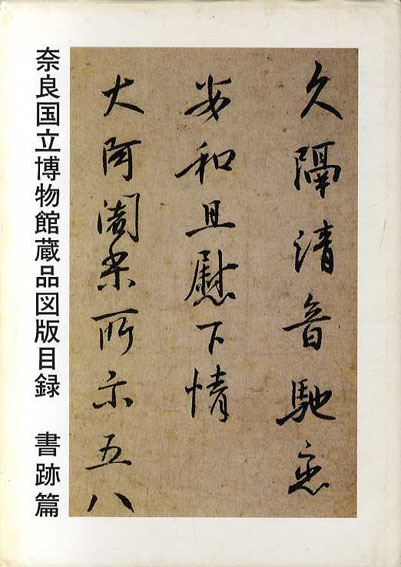 久隔清音馳恋
安和且慰下情
大阿闍梨所示五八
奈良国立博物館蔵品図版目録 書跡篇